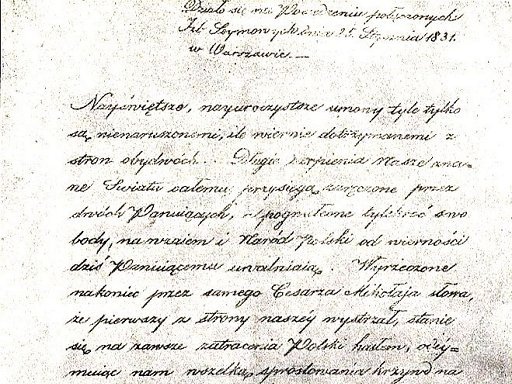 Działo się na Posiedzeniu połączonych
Izb Seymowych dnia 25. Stycznia 1831.
w Warszawie. —
Nayświętsze, nayuroczystsze umowy tyle tylko
są nienaruszonemi, ile wiernie dotrzymanemi z
stron obydwóch. Długie cierpienia nasze zna-
ne Światu całemu, przysięgą zaręczone przez
dwóch Panuiących, a pogwałcone tylekroć swo
body, nawzaiem i Naród Polski od wierności
dziś Panuiącemu uwalniaią. Wyrzeczone
nakoniec przez samego Cesarza Mikołaja słowa,
że pierwszy z strony naszéy wystrzał, stanie
się na zawsze zatracenia Polski hasłem, odey-
muiąc nam wszelką sprostowania krzywd na